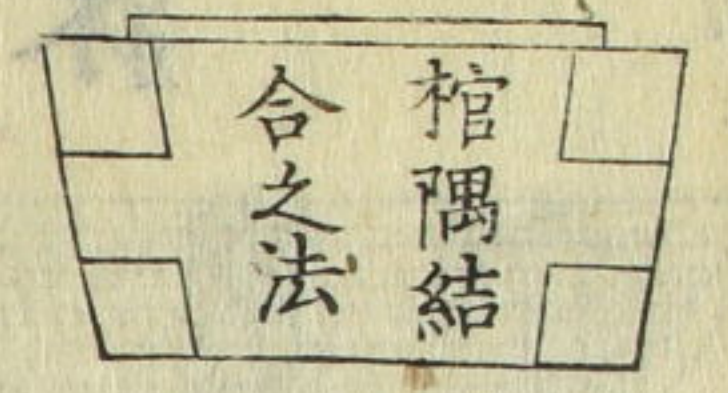 棺隅結
合之法